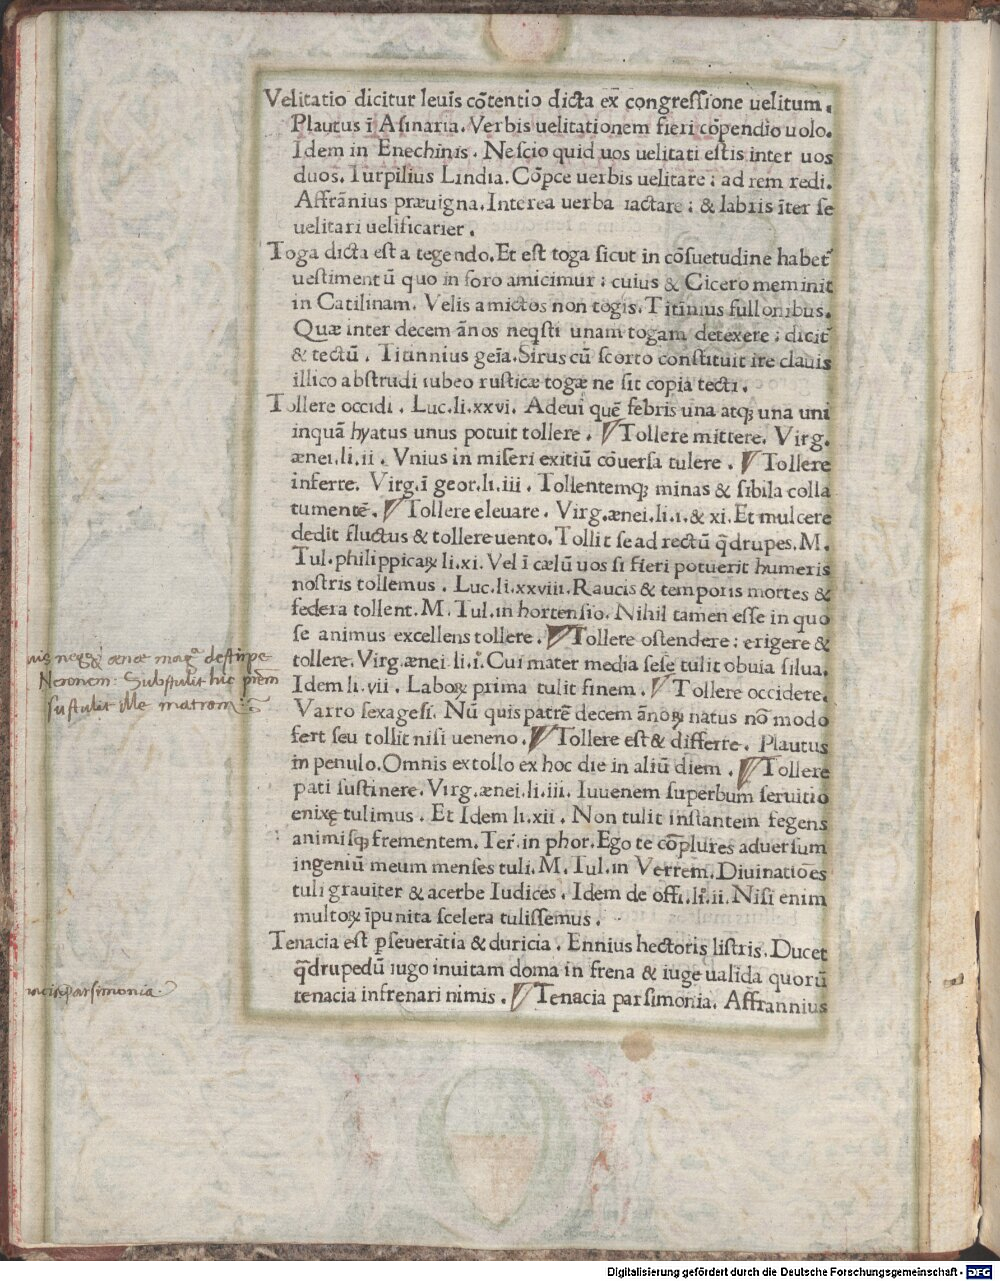 Velitatio dicitur leuis cōtentio dicta ex congressione uelitum.
Plautus ī Asinaria. Verbis uelitationem fieri cōpendio uolo.
Idem in Enechinis. Nescio quid uos uelitati estis inter uos
duos. Turpilius Lindia. Cōpce uerbis uelitare: ad rem redi.
Affrānius præuigna. Interea uerba iactare: & labris īter se
uelitari uelificarier.
Toga dicta est a tegendo. Et est toga sicut in cōsuetudine habet̄
uestimentū quo in foro amicimur: cuius & Cicero meminit
in Catilinam. Velis amictos non togis. Titinius fullonibus.
Quæ inter decem ānos neqsti unam togam detexere: dicit̄
& tectū. Titinnius geīa. Sirus cū scorto constituit ire clauis
illico abstrudi iubeo rusticæ togæ ne sit copia tecti.
Tollere occidi. Luc.li.xxvi. Adeui quē febris una atq; una uni
inquā hyatus unus potuit tollere. Tollere mittere. Virg.
ænei.li.ii. Vnius in miseri exitiū cōuersa tulere. Tollere
inferre. Virg.ī geor.li.iii. Tollentemq; minas & sibila colla
tumentē. Tollere eleuare. Virg.ænei.li.i.& xi. Et mulcere
dedit fluctus & tollere uento. Tollit se ad rectū q̄drupes. M.
Tul.philippicaꝝ li.xi. Vel ī cælū uos si fieri potuerit humeris
nostris tollemus. Luc.li.xxviii. Raucis & temporis mortes &
federa tollent. M. Tul.in hortensio. Nihil tamen esse in quo
se animus excellens tollere. Tollere ostendere: erigere &
tollere. Virg.ænei li.i. Cui mater media sese tulit obuia silua.
Idem li.vii. Laboꝝ prima tulit finem. Tollere occidere.
Varro sexagesi. Nū quis patrē decem ānoꝝ natus nō modo
fert seu tollit nisi ueneno. Tollere est & differre. Plautus
in penulo. Omnis extollo ex hoc die in aliū diem. Tollere
pati sustinere. Virg.ænei.li.iii. Iuuenem superbum seruitio
enixę tulimus. Et Idem li.xii. Non tulit instantem fegens
animisq; frementem. Ter̄. in phor. Ego te cōplures aduersum
ingeniū meum menses tuli. M. Tul.in Verrem. Diuinatiōes
tuli grauiter & acerbe Iudices. Idem de offi.li.ii. Nisi enim
multoꝝ īpunita scelera tulissemus.
Tenacia est ꝑseuerātia & duricia. Ennius hectoris listris. Ducet
q̄drupedū iugo inuitam doma in frena & iuge ualida quorū
tenacia infrenari nimis. Tenacia parsimonia. Affrannius
æneæ magª de stirpe
Neronem: Substulit hic
sustulit ille matrem
parsimonia
Digitalisierung gefördert durch die Deutsche Forschungsgemeinschaft - DFG